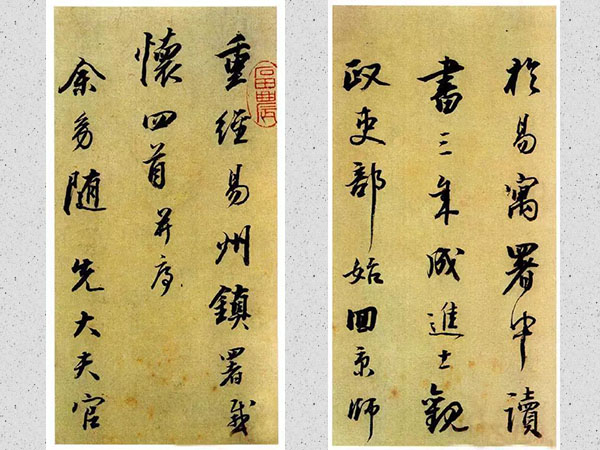 重經易州鎮署感
懷四首并序
余幼随先大夫官
於易寓署中讀
書三年成進士觀
政吏部始回京師